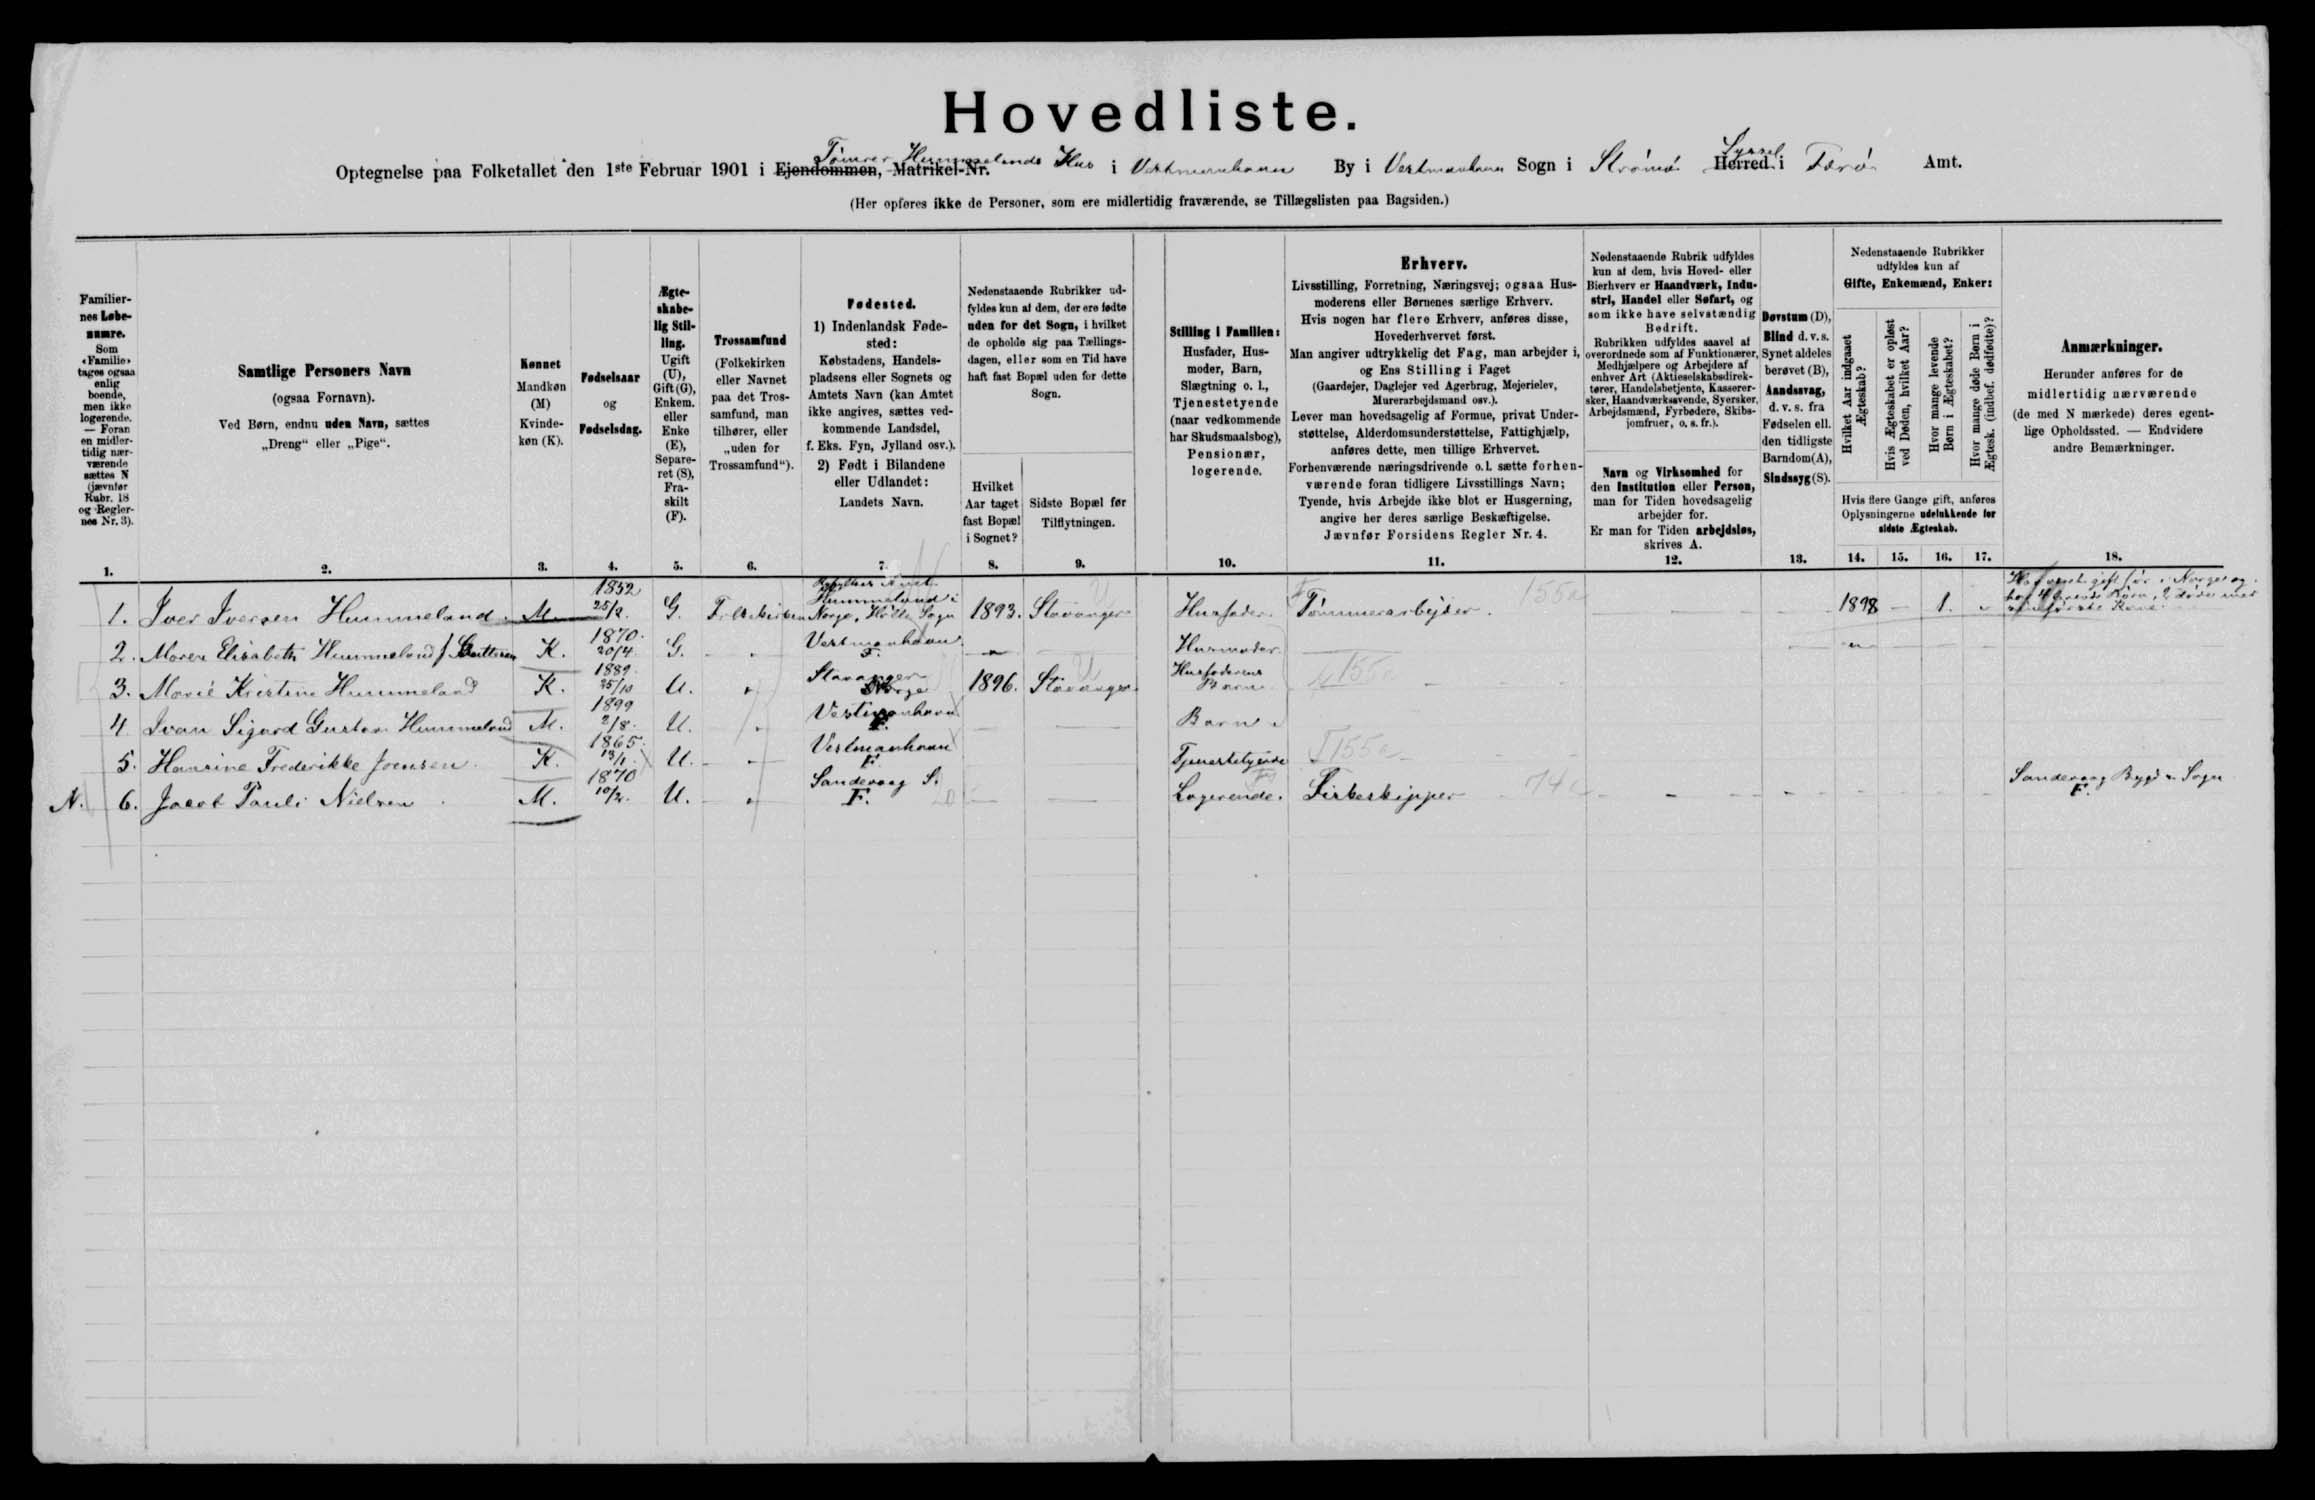 Hovedliste.
Optegnelse paa Folketallet den 1ste Februar 1901 i Ejendommen, Matrikel-Nr. Tømrer Hummelands Hus i Vestmanhavn By i Vestmanhavn Sogn i Strømø Herred Syssel i Færø Amt.
(Her opføres ikke de Personer, som ere midlertidig fraværende, se Tillægslisten paa Bagsiden.)
Familier-
nes Løbe-
numre.
Som
«Familie»
tages ogsaa
enlig
boende,
men ikke
logerende.
— Foran
en midler-
tidig nær-
værende
sættes N
(jævnfør
Rubr. 18
og Regler-
nes Nr. 3).
Samtlige Personers Navn
(ogsaa Fornavn).
Ved Børn, endnu uden Navn, sættes
„Dreng“ eller „Pige“.
Kønnet
Mandkøn
(M)
Kvinde-
køn (K).
Fødselsaar
og
Fødselsdag.
Ægte-
skabe-
lig Stil-
ling.
Ugift
(U),
Gift (G),
Enkem.
eller
Enke
(E),
Separe-
ret (S),
Fra-
skilt
(F).
Trossamfund
(Folkekirken
eller Navnet
paa det Tros-
samfund, man
tilhører, eller
„uden for
Trossamfund“).
Fødested.
1) Indenlandsk Føde-
sted:
Købstadens, Handels-
pladsens eller Sognets og
Amtets Navn (kan Amtet
ikke angives, sættes ved-
kommende Landsdel,
f. Eks. Fyn, Jylland osv.).
2) Født i Bilandene
eller Udlandet:
Landets Navn.
Nedenstaaende Rubrikker ud-
fyldes kun af dem, der ere fødte
uden for det Sogn, i hvilket
de opholde sig paa Tællings-
dagen, eller som en Tid have
haft fast Bopæl uden for dette
Sogn.
Hvilket
Aar taget
fast Bopæl
i Sognet?
Sidste Bopæl før
Tilflytningen.
Stilling i Familien:
Husfader, Hus-
moder, Barn,
Slægtning o. l.,
Tjenestetyende
(naar vedkommende
har Skudsmaalsbog),
Pensionær,
logerende.
Erhverv.
Livsstilling, Forretning, Næringsvej; ogsaa Hus-
moderens eller Børnenes særlige Erhverv.
Hvis nogen har flere Erhverv, anføres disse,
Hovederhvervet først.
Man angiver udtrykkelig det Fag, man arbejder i,
og Ens Stilling i Faget
(Gaardejer, Daglejer ved Agerbrug, Mejerielev,
Murerarbejdsmand osv.).
Lever man hovedsagelig af Formue, privat Under-
støttelse, Alderdomsunderstøttelse, Fattighjælp,
anføres dette, men tillige Erhvervet.
Forhenværende næringsdrivende o. l. sætte forhen-
værende foran tidligere Livsstillings Navn;
Tyende, hvis Arbejde ikke blot er Husgerning,
angive her deres særlige Beskæftigelse.
Jævnfør Forsidens Regler Nr. 4.
Nedenstaaende Rubrik udfyldes
kun af dem, hvis Hoved- eller
Bierhverv er Haandværk, Indu-
stri, Handel eller Søfart, og
som ikke have selvstændig
Bedrift.
Rubrikken udfyldes saavel af
overordnede som af Funktionærer,
Medhjælpere og Arbejdere af
enhver Art (Aktieselskabsdirek-
tører, Handelsbetjente, Kasserer-
sker, Haandværkssvende, Syersker,
Arbejdsmænd, Fyrbødere, Skibs-
jomfruer, o. s. fr.).
Navn og Virksomhed for
den Institution eller Person,
man for Tiden hovedsagelig
arbejder for.
Er man for Tiden arbejdsløs,
skrives A.
Døvstum (D),
Blind d. v. s.
Synet aldeles
berøvet (B),
Aandssvag,
d. v. s. fra
Fødselen ell.
den tidligste
Barndom (A),
Sindssyg (S).
Nedenstaaende Rubrikker
udfyldes kun af
Gifte, Enkemænd, Enker:
Hvilket Aar indgaaet
Ægteskab?
Hvis Ægteskabet er opløst
ved Døden, hvilket Aar?
Hvor mange levende
Børn i Ægteskabet?
Hvor mange døde Børn i
Ægtesk. (indbef. dødfødte)?
Hvis flere Gange gift, anføres
Oplysningerne udelukkende for
sidste Ægteskab.
Anmærkninger.
Herunder anføres for de
midlertidig nærværende
(de med N mærkede) deres egent-
lige Opholdssted. — Endvidere
andre Bemærkninger.
1. 2. 3. 4. 5. 6. 7. 8. 9. 10. 11. 12. 13. 14. 15. 16. 17. 18.
1. Iver Iversen Hummeland. M. 1852 25/2. G. Folkekirken Hummeland i Norge, Hølle Sogn 1893. Stavanger Husfader. Tømmerarbejder. 155a 1898 — 1.
2. Maren Elisabeth Hummeland f. K. 1870. 20/4. G. Vestmanhavn F. Husmoder
3. Marie Kristine Hummeland K. 1889. 25/10 U. Stavanger Norge 1896. Stavanger Husfaderens Barn 155a
4. Ivan Sigard Gustav Hummeland M. 1899 2/8. U. Vestmanhavn F. Barn
5. Hansine Frederikke Joensen. K. 1865. 13/1. U. Vestmanhavn F. Tjenestetyende T155a
N. 6. Jacob Pauli Nielsen. M. 1870 10/2. U. Sandevaag S. F. Logerende. Fiskeskipper 74 Sandevaag Bygd & Sogn F.